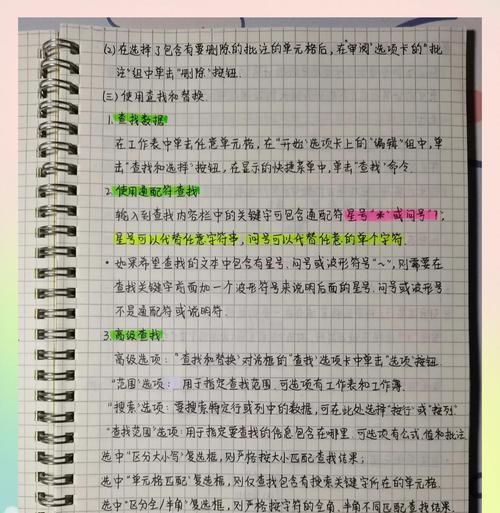 (2)在选择了包含有要删除的批注的单元格后,在"审阅"选项卡的"批
注"组中单击"删除"按钮.
(三)使用查找和替换.
1.查找数据
在工作表中单击任意单元格,在"开始"选项卡上的"编辑"组中,单
击"查找和选择"按钮,在显示的快捷菜单中,单击"查找"命令.
2.使用通配符查找
输入到查找内容栏中的关键字可包含通配符星号"*"或问号"?",
星号可以代替任意字符串,问号可以代替任意的单个字符.
•如果希望查找的文本中包含有星号、问号或波形符号"~",则需要在
查找关键字前面加一个波形符号来说明后面的星号、问号或波形号
不是通配符或说明符.
3.高级查找
高级选项:"查找和替换"对话框的"查找"选项卡中单击"选项"按钮.
"范围"选项: 用于指定查找范围.可选项有工作表和工作簿.
"搜索"选项:要搜索特定行或列中的数据,可在此处选择"按行"或"按列"
"查找范围"选项:用于指定要查找的信息包含在哪里.可选项有公式、值和批注.
选中"区分大小写"复选框,则严格按大小匹配查找结果;
选中"单元格匹配"复选框,则仅查找包含有搜索关键字所在的单元格.
选中"区分全/半角"复选框,则严格按字符的全角、半角不同匹配查找结果.